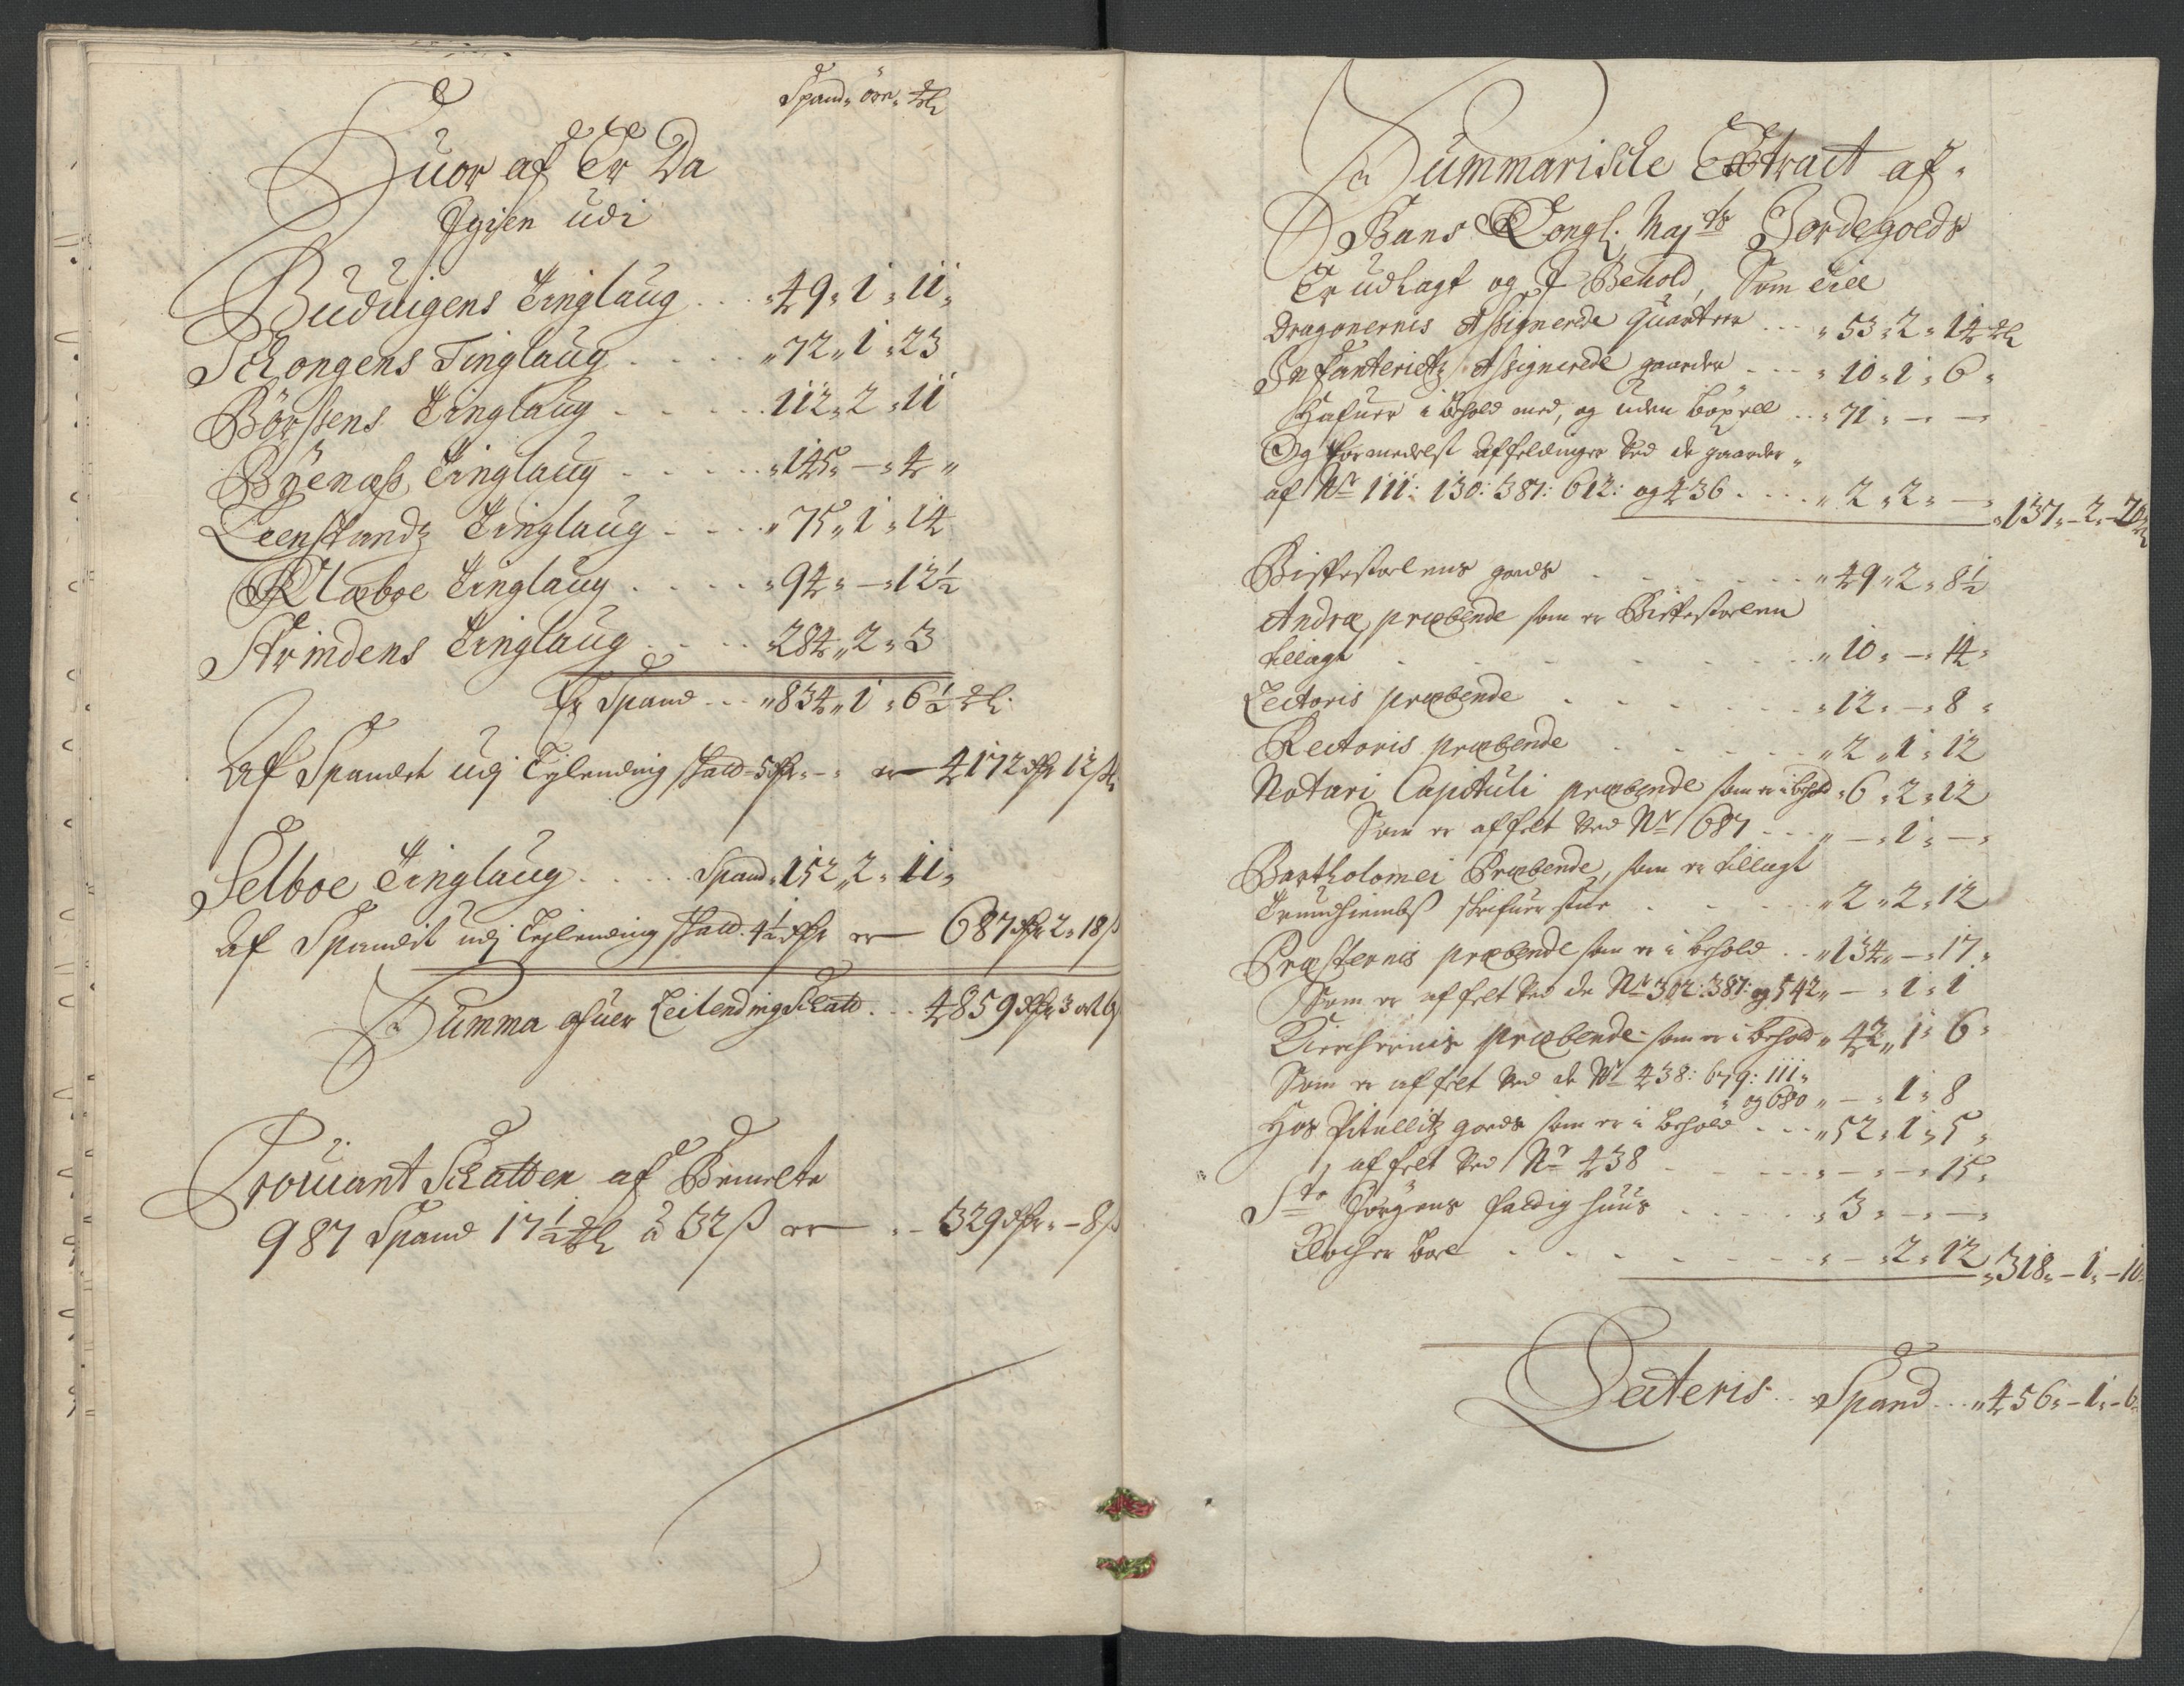 Spand, öre, ₰l
Huor af Er Da
Igien udi
Buduigens Tinglaug . . . 49 , 1 , 11 ,
Schongens Tinglaug . . . . „ 72 „ 1 , 23
Börssens Tinglaug . . . . . 112 , 2 , 11
Byenæss Tinglaug . . . . . „ 145 , — , 4 „
Leenstrandz Tinglaug . . . . „ 75 „ 1 , 14
Klæboe Tinglaug . . . . . , 94 , — , 12½
Strindens Tinglaug . . . . , 284 „ 2 , 3
Er Spand . . . „ 834 „ 1 , 6½ ₰l
Af Spandet udj Leylending schatt 5 Rdr - er — 4172 Rdr 12 ß
Selboe Tinglaug . . . . . Spand , 152 „ 2 , 11 ,
Af Spandet udj Leylending schatt 4½ Rdr er — 687 Rdr 2 , 18 ß
Summa ofuer Leilending Schatt . . . 4859 Rdr 3 ort 6
Prouiant Schatten af Bemelte
987 Spand 17½ ₰l à 32 ß er — . . 329 Rdr , — 8 ß
Summarische Extract af
Hans Kongl: Mayts Jordegoeds
Er udlagt og J Behold, Som till
Dragonernis Assignerde Quarterer . . . „ 53 , 2 , 14 ₰l
Infanterietz Assignerede gaarder . . . , 10 , 1 , 6 ,
Hafuer i behold med, og uden böxell . . , 71 , — , —
Og formedelst affeldinger ved de gaarder
af No 111: 130: 387: 612: og 436 . . . . „ 2 , 2 , — , 137 , — 2 , — 20 ₰l
Bispestoelens goeds . . . . . . „ 49 „ 2 , 8½
Andræ præbende som er Bispestoelen
tillagt . . . . . . . „ 10 , — , 14 ,
Lectoris præbende . . . . . . , 12 , — , 8 ,
Rectoris præbende . . . . . „ 2 „ 1 , 12
Notari Capituli præbende som er i behold , 6 , 2 , 12
Som er affelt ved No 687 . . . „ — , 1 , — ,
Bartholomei Præbende, som er tillagt
Trundhiembs schrifuer stue . . . . . „ 2 „ 2 , 12
Præsternis præbende som er i behold . . „ 134 „ — , 17 ,
Som er affelt ved de No 302: 387: og 542 „ — , 1 , 1
Kierchernis præbende som er i behold „ 42 „ 1 , 6 ,
Som er affelt ved de No 438: 679: 111:
og 680 „ — , 1 , 8
Hospitallitz goeds som er i behold . . . „ 52 , 1 , 5 ,
affelt ved No 438 . . . . . , — , — , 15 ,
Sto Jörgens fattig huus . . . . . , 3 , — , — ,
Klocher boel . . . . . . . , — , 2 , 12 , 318 , — 1 , — 10 ,
Lateris . . Spand . . . „ 456 , — 1 , — 6